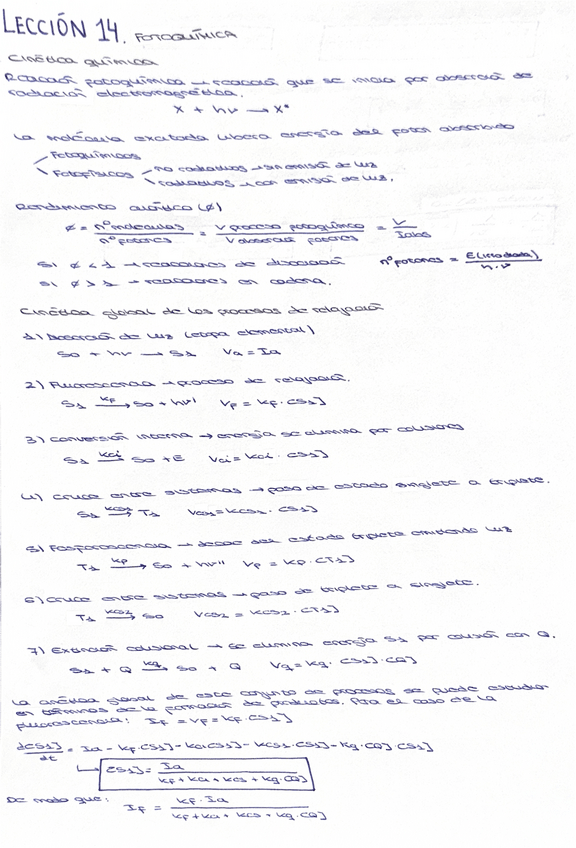 LECCIÓN 14. FOTOQUÍMICA
Cinética química
Reacción fotoquímica → reacción que se inicia por absorción de
radiación electromagnética.
X + hν → X*
La molécula excitada libera energía del fotón absorbido
Fotoquímicos
Fotofísicos no radiativos → sin emisión de luz
radiativos → con emisión de luz.
Rendimiento cuántico (ø)
ø = nº moléculas / nº fotones = V proceso fotoquímico / V absorción fotones = V / Iabs
Si ø < 1 → reacciones de disociación nº fotones = E(irradiada) / h·ν
Si ø > 1 → reacciones en cadena.
Cinética global de los procesos de relajación
1) Absorción de luz (etapa elemental)
S0 + hν → S1 Va = Ia
2) Fluorescencia → proceso de relajación.
S1 kf→ S0 + hν' Vf = kf·[S1]
3) Conversión interna → energía se elimina por colisiones
S1 kci→ S0 + E Vci = kci·[S1]
4) Cruce entre sistemas → paso de estado singlete a triplete.
S1 kcs1→ T1 Vcs1 = kcs1·[S1]
5) Fosforescencia → decae del estado triplete emitiendo luz
T1 kp→ S0 + hν'' Vp = kp·[T1]
6) Cruce entre sistemas → paso de triplete a singlete.
T1 kcs2→ S0 Vcs2 = kcs2·[T1]
7) Extinción colisional → se elimina energía S1 por colisión con Q.
S1 + Q kq→ S0 + Q Vq = kq·[S1]·[Q]
La cinética global de este conjunto de procesos se puede estudiar
en términos de la formación de productos. Para el caso de la
fluorescencia: If = Vf = kf·[S1]
d[S1]/dt = Ia - kf·[S1] - kci[S1] - kcs1·[S1] - kq·[Q]·[S1]
[S1] = Ia / kf + kci + kcs + kq·[Q]
De modo que: If = kf·Ia / kf + kci + kcs + kq·[Q]